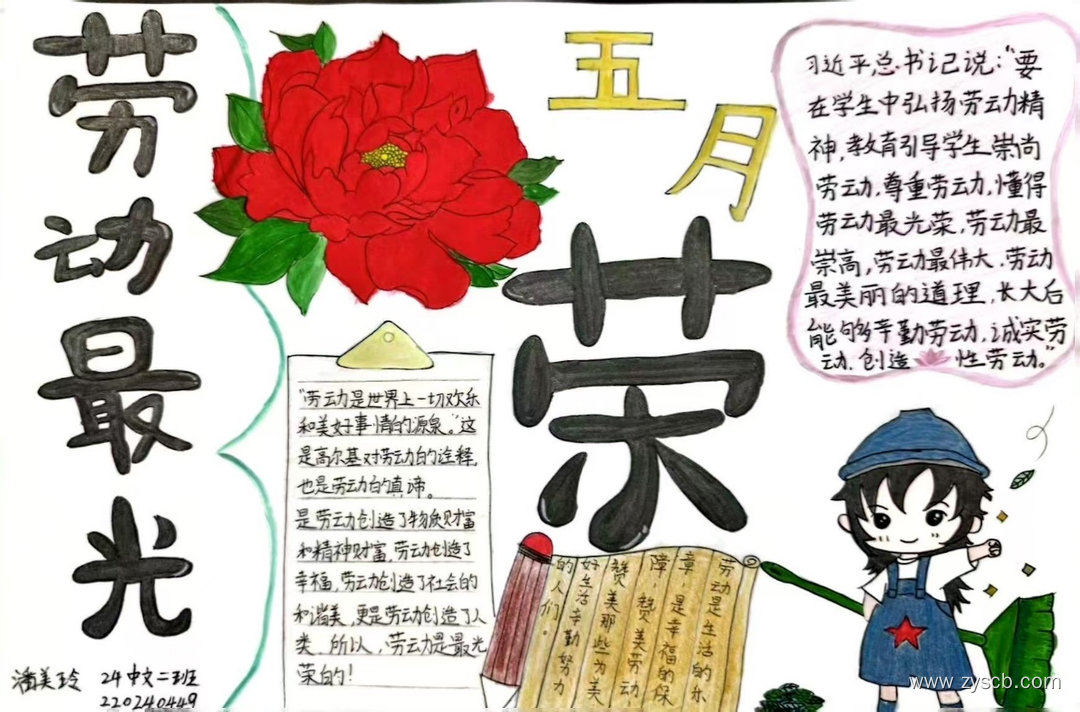 劳动最光
荣
五月
习近平总书记说:"要
在学生中弘扬劳动精
神,教育引导学生崇尚
劳动,尊重劳动,懂得
劳动最光荣,劳动最
崇高,劳动最伟大,劳动
最美丽的道理,长大后
能够辛勤劳动,诚实劳
动,创造性劳动。"
"劳动是世界上一切欢乐
和美好事情的源泉。"这
是高尔基对劳动的诠释,
也是劳动的真谛。
是劳动创造了物质财富
和精神财富,劳动创造了
幸福,劳动创造了社会的
和谐美,更是劳动创造了人
类。所以,劳动是最光
荣的!
劳动是生活的乐
章,是幸福的保
障,赞美劳动,
赞美那些为美
好生活辛勤努力
的人们。
潘美玲 24中文二班
220240449
www.zyscb.com